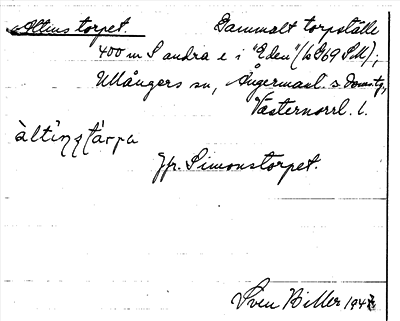 Altins torpet. Gammalt torpställe
400 m S andra e i "Eden" (16 I 69 SM);
Ullångers sn, Ångermanl. s. domsg,
Västernorrl. l.
àltìnstárpa
Jfr. Simonstorpet.
Sven Biller 1947